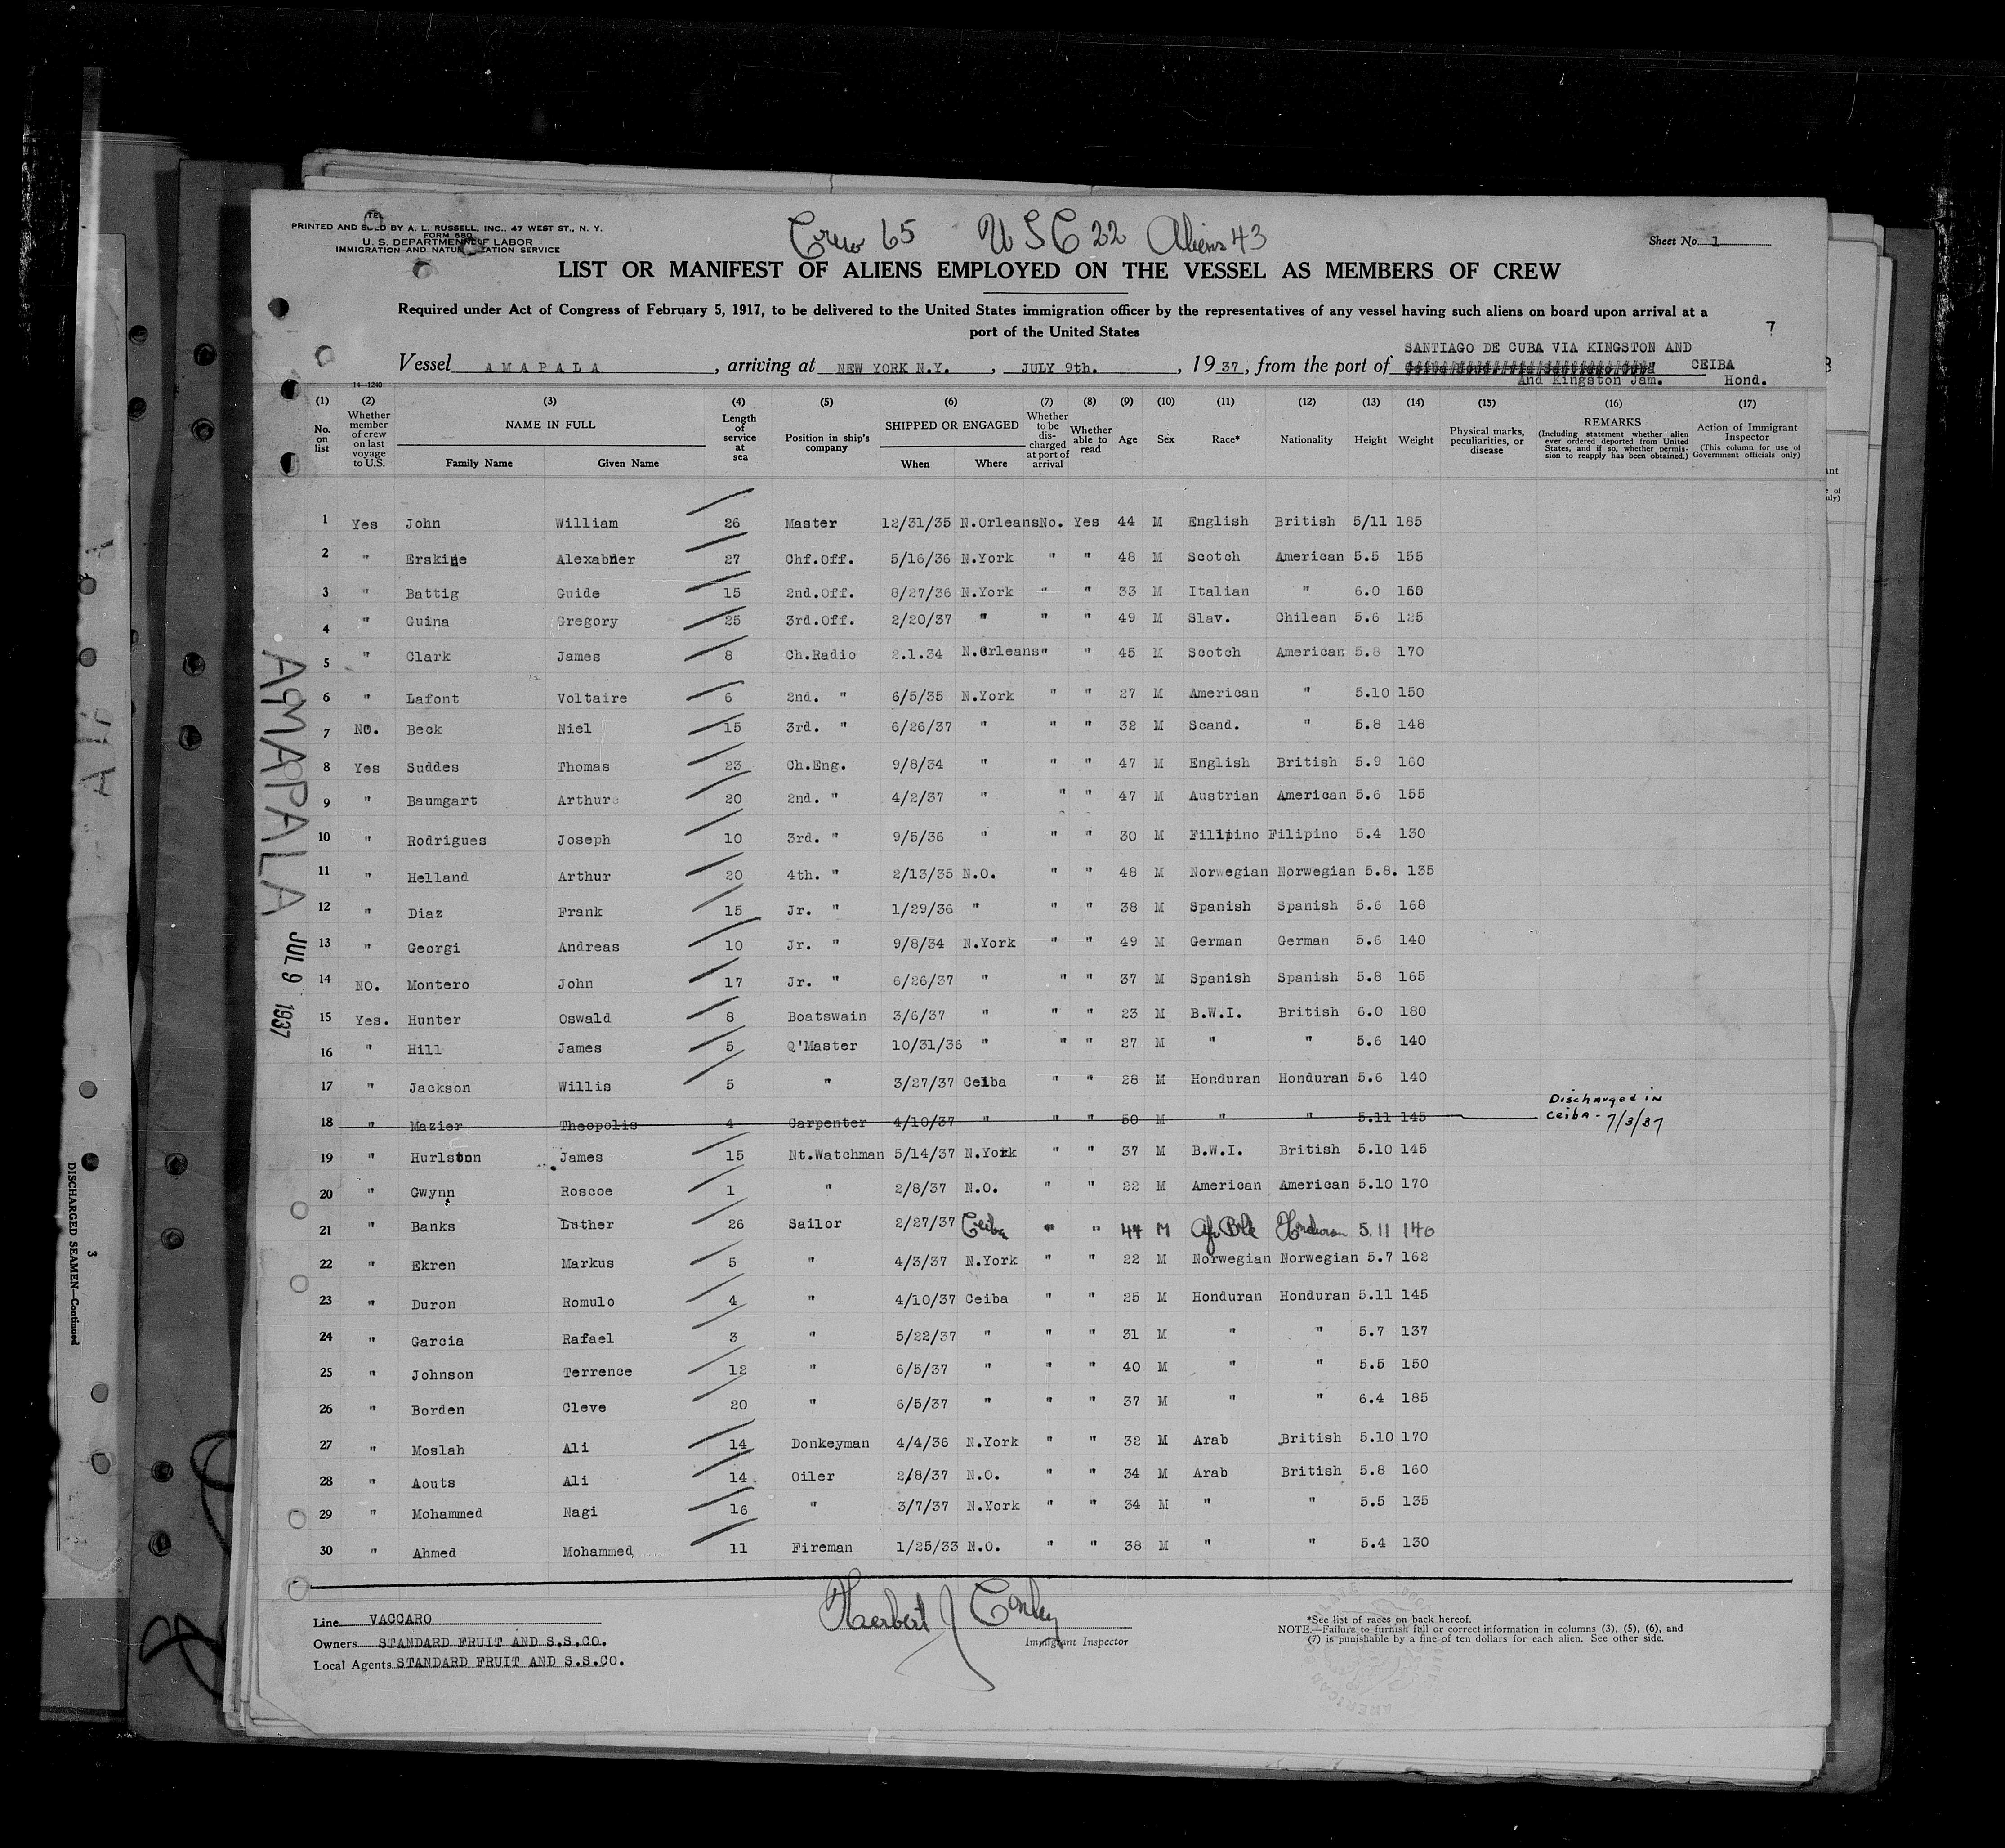 Crew 65 USC 22 Aliens 43
PRINTED AND SOLD BY A. L. RUSSELL, INC., 47 WEST ST., N. Y.
FORM 680
U. S. DEPARTMENT OF LABOR
IMMIGRATION AND NATURALIZATION SERVICE
Sheet No. 1
LIST OR MANIFEST OF ALIENS EMPLOYED ON THE VESSEL AS MEMBERS OF CREW
Required under Act of Congress of February 5, 1917, to be delivered to the United States immigration officer by the representatives of any vessel having such aliens on board upon arrival at a
port of the United States
7
SANTIAGO DE CUBA VIA KINGSTON AND
Vessel AMAPALA, arriving at NEW YORK N.Y., JULY 9th., 1937, from the port of CEIBA
And Kingston Jam. Hond.
14-1240
(1) (2) (3) (4) (5) (6) (7) (8) (9) (10) (11) (12) (13) (14) (15) (16) (17)
No. on list
Whether member of crew on last voyage to U.S.
NAME IN FULL
Family Name Given Name
Length of service at sea
Position in ship's company
SHIPPED OR ENGAGED
When Where
Whether to be discharged at port of arrival
Whether able to read
Age
Sex
Race*
Nationality
Height
Weight
Physical marks, peculiarities, or disease
REMARKS
(Including statement whether alien ever ordered deported from United States, and if so, whether permission to reapply has been obtained.)
Action of Immigrant Inspector
(This column for use of Government officials only)
1 Yes John William 26 Master 12/31/35 N.Orleans No. Yes 44 M English British 5/11 185
2 " Erskine Alexabnder 27 Chf.Off. 5/16/36 N.York " " 48 M Scotch American 5.5 155
3 " Battig Guide 15 2nd.Off. 8/27/36 N.York " " 33 M Italian " 6.0 160
4 " Guina Gregory 25 3rd.Off. 2/20/37 " " " 49 M Slav. Chilean 5.6 125
5 " Clark James 8 Ch.Radio 2.1.34 N.Orleans " " 45 M Scotch American 5.8 170
6 " Lafont Voltaire 6 2nd. " 6/5/35 N.York " " 27 M American " 5.10 150
7 NO. Beck Niel 15 3rd. " 6/26/37 " " " 32 M Scand. " 5.8 148
8 Yes Suddes Thomas 23 Ch.Eng. 9/8/34 " " " 47 M English British 5.9 160
9 " Baumgart Arthur 20 2nd. " 4/2/37 " " " 47 M Austrian American 5.6 155
10 " Rodrigues Joseph 10 3rd. " 9/5/36 " " " 30 M Filipino Filipino 5.4 130
11 " Helland Arthur 20 4th. " 2/13/35 N.O. " " 48 M Norwegian Norwegian 5.8. 135
12 " Diaz Frank 15 Jr. " 1/29/36 " " " 38 M Spanish Spanish 5.6 168
13 " Georgi Andreas 10 Jr. " 9/8/34 N.York " " 49 M German German 5.6 140
14 NO. Montero John 17 Jr. " 6/26/37 " " " 37 M Spanish Spanish 5.8 165
15 Yes. Hunter Oswald 8 Boatswain 3/6/37 " " " 23 M B.W.I. British 6.0 180
16 " Hill James 5 Q'Master 10/31/36 " " " 27 M " " 5.6 140
17 " Jackson Willis 5 " 3/27/37 Ceiba " " 28 M Honduran Honduran 5.6 140
18 " Mazier Theopolis 4 Carpenter 4/10/37 " " " 50 M " " 5.11 145 Discharged in Ceiba - 7/3/37
19 " Hurlston James 15 Nt.Watchman 5/14/37 N.York " " 37 M B.W.I. British 5.10 145
20 " Gwynn Roscoe 1 " 2/8/37 N.O. " " 22 M American American 5.10 170
21 " Banks Luther 26 Sailor 2/27/37 Ceiba " " 44 M Af Blk Honduran 5.11 140
22 " Ekren Markus 5 " 4/3/37 N.York " " 22 M Norwegian Norwegian 5.7 162
23 " Duron Romulo 4 " 4/10/37 Ceiba " " 25 M Honduran Honduran 5.11 145
24 " Garcia Rafael 3 " 5/22/37 " " " 31 M " " 5.7 137
25 " Johnson Terrence 12 " 6/5/37 " " " 40 M " " 5.5 150
26 " Borden Cleve 20 " 6/5/37 " " " 37 M " " 6.4 185
27 " Moslah Ali 14 Donkeyman 4/4/36 N.York " " 32 M Arab British 5.10 170
28 " Aouts Ali 14 Oiler 2/8/37 N.O. " " 34 M Arab British 5.8 160
29 " Mohammed Nagi 16 " 3/7/37 N.York " " 34 M " " 5.5 135
30 " Ahmed Mohammed 11 Fireman 1/25/33 N.O. " " 38 M " " 5.4 130
AMAPALA
JUL 9 1937
3
DISCHARGED SEAMEN—Continued
Line VACCARO
Owners STANDARD FRUIT AND S.S.CO.
Local Agents STANDARD FRUIT AND S.S.CO.
Herbert J Conley
Immigrant Inspector
*See list of races on back hereof.
NOTE.—Failure to furnish full or correct information in columns (3), (5), (6), and
(7) is punishable by a fine of ten dollars for each alien. See other side.